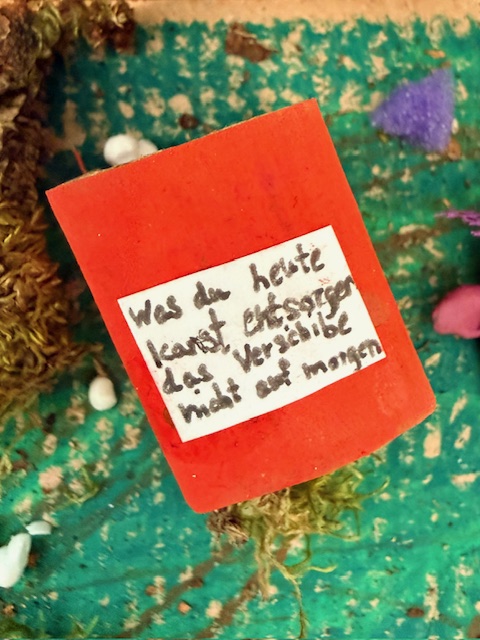 Was du heute
kanst entsorgen
das Verschibe
nicht auf morgen